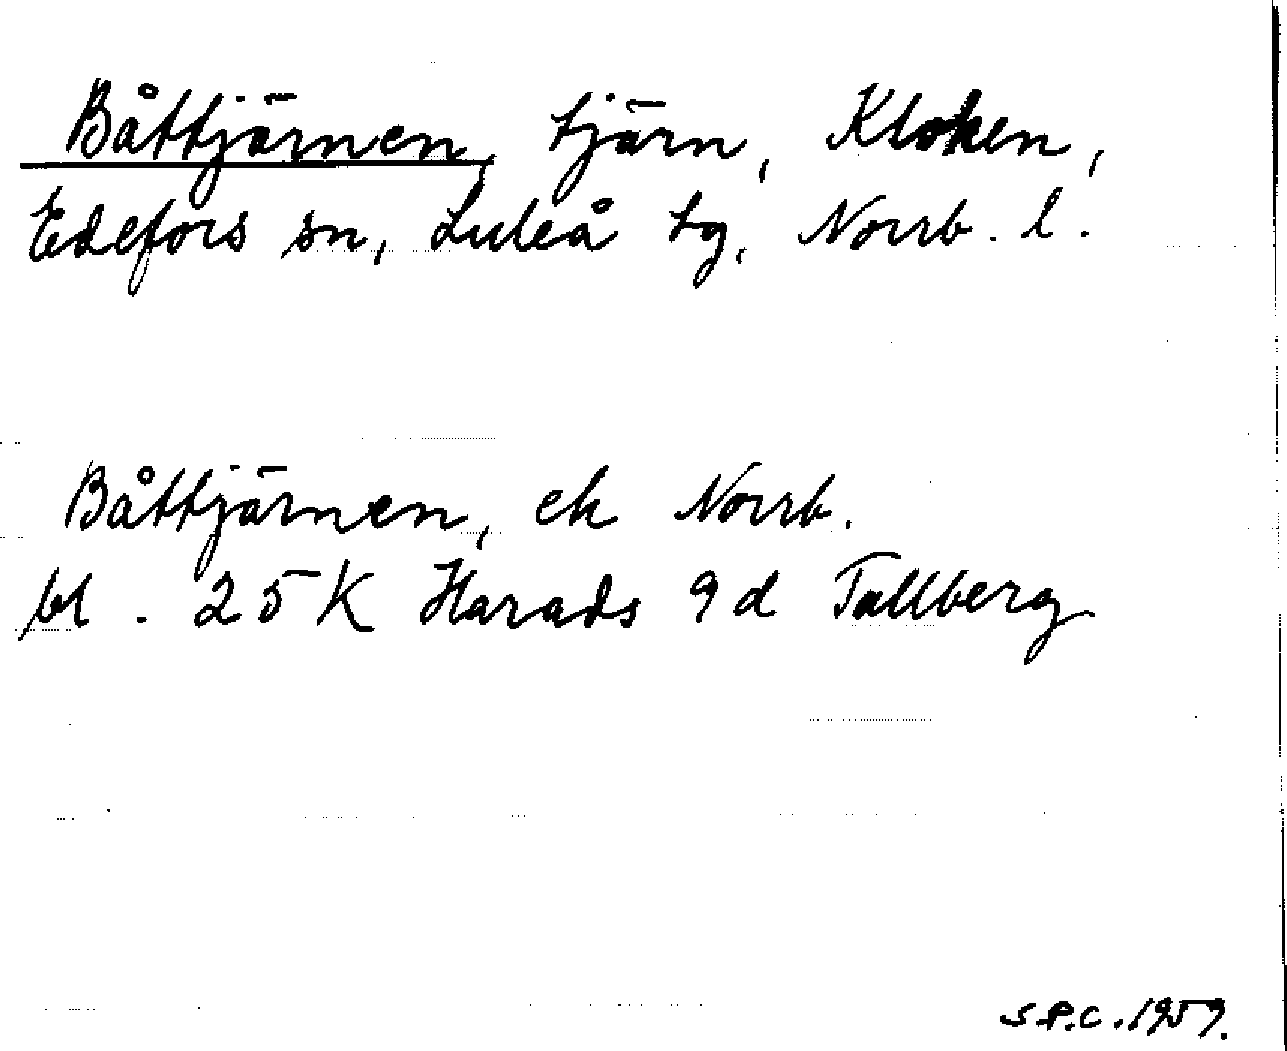 Båttjärnen, tjärn, Kloken,
Edefors sn, Luleå tg, Norrb. l.
Båttjärnen, ek Norrb.
bl. 25 K Harads 9 d Tallberg
S.P.C. 1959.